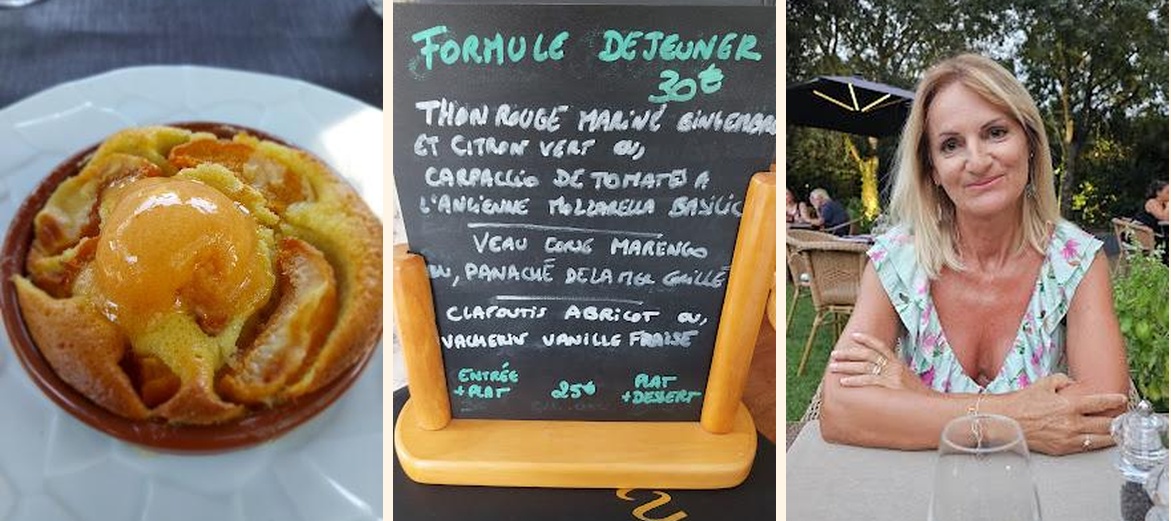 FORMULE DEJEUNER
30€
THON ROUGE MARINÉ GINGEMBRE
ET CITRON VERT OU,
CARPACCIO DE TOMATES A
L'ANCIENNE MOZZARELLA BASILIC
VEAU COMME MARENGO
OU, PANACHÉ DE LA MER GRILLÉ
CLAFOUTIS ABRICOT OU,
VACHERIN VANILLE FRAISE
ENTRÉE
+PLAT
25€
PLAT
+DESSERT